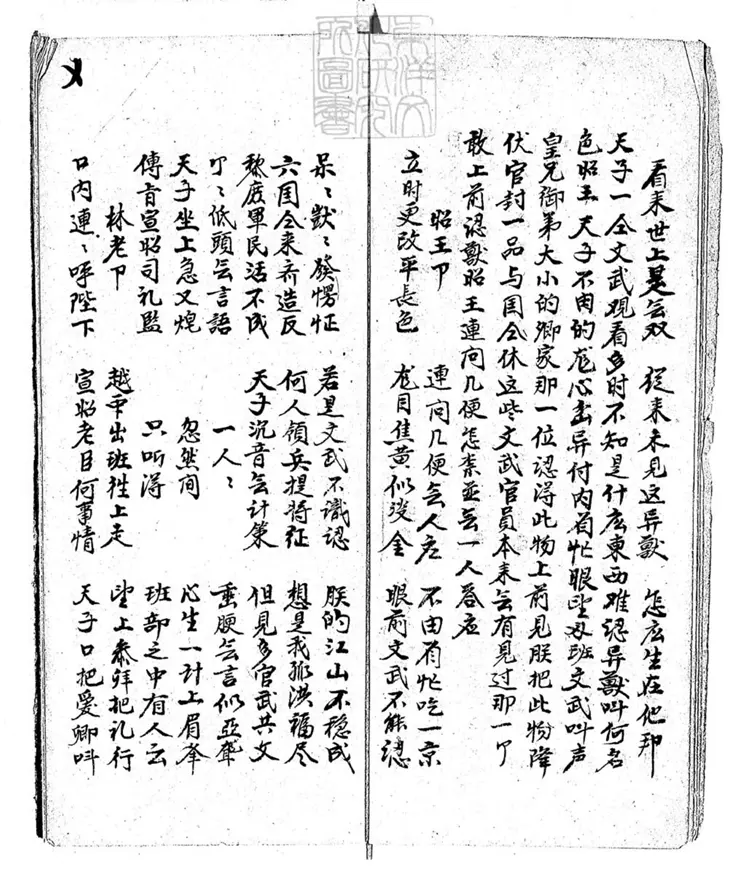 看來世上是亽双　從来未見这异獸　怎庅生在他邦
天子一仝文武观看多时不知是什庅東西难認异獸叫何名
色昭王天子不由的龙心出异付内着忙眼望双班文武叫声
皇兄御弟大小的卿家那一位認淂此物上前見朕把此物降
伏官封一品与国仝休这些文武官員本来亽有見过那一个
敢上前認獸昭王連问几便怎奈並亽一人答应
昭王卩　連问几便亽人应　不由着忙吃一京
立时更改平長色　龙目焦黄似沒金　眼前文武不能認
呆〻獣〻發愣怔　若是文武不識認　朕的江山不穏成
六国仝来齐造反　何人領兵提将征　想是我孤洪福尽
黎庶軍民活不成　天子沉音亽计策　但見多官武共文
个〻低頭亽言語　一人〻　垂腰亽言似亞聾
天子坐上急又煌　忽然间　心生一计上眉峯
傳旨宣昭司礼監　只听淂　班部之中有人云
林老卩　越中出班徃上走　望上叅拜把礼行
口内連〻呼陛下　宣昭老臣何事情　天子口把爱卿叫
東洋文化研究所圖書